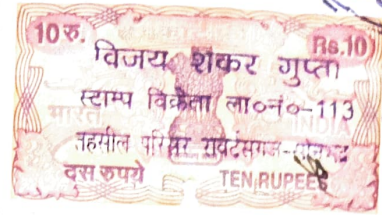 10 रु. Rs.10
विजय शंकर गुप्ता
स्टाम्प विक्रेता ला०नं०-113
भारत INDIA
तहसील परिसर राबर्टसगंज-सोनभद्र
दस रुपये TEN RUPEES